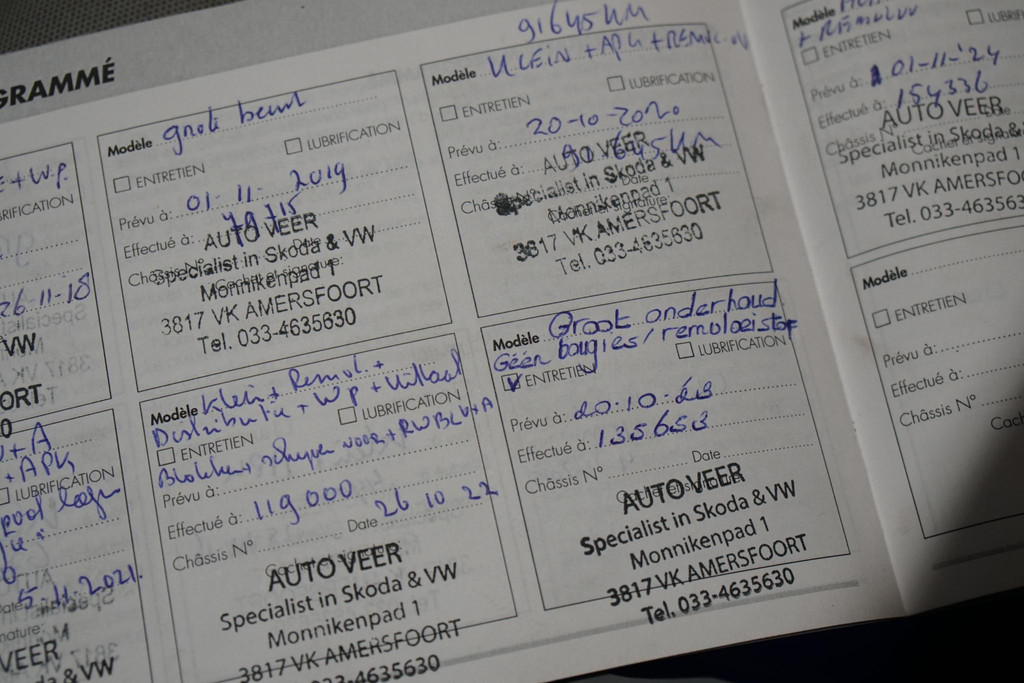 GRAMMÉ
+ W.P.
RIFICATION
26-11-18
VW
ORT
Modèle grote beurt
ENTRETIEN
LUBRIFICATION
Prévu à: 01-11-2019
Effectué à:
Châssis N°
AUTO VEER
Specialist in Skoda & VW
Monnikenpad 1
3817 VK AMERSFOORT
Tel. 033-4635630
91645 KM
Modèle KLEIN + APK +
ENTRETIEN
LUBRIFICATION
Prévu à: 20-10-2020
Effectué à:
AUTO VEER
Specialist in Skoda & VW
Monnikenpad 1
3817 VK AMERSFOORT
Tel. 033-4635630
Modèle
ENTRETIEN
Prévu à: 01-11-'24
Effectué à: 154336
Châssis N°
AUTO VEER
Specialist in Skoda &
Monnikenpad 1
3817 VK AMERSFO
Tel. 033-46356
+ A
+ APK
LUBRIFICATION
5-11-2021.
nature:
VEER
da & VW
Modèle Klein + Remol. +
Distributie + WP +
ENTRETIEN
LUBRIFICATION
Blokken + voor +
Prévu à:
Effectué à: 119.000
Châssis N°
Date 26 10 22
AUTO VEER
Specialist in Skoda & VW
Monnikenpad 1
3817 VK AMERSFOORT
033-4635630
Modèle Groot onderhoud
Géén bougies/remvloeistof
ENTRETIEN
LUBRIFICATION
Prévu à: 20-10-23
Effectué à: 135653
Châssis N°
Date
AUTO VEER
Specialist in Skoda & VW
Monnikenpad 1
3817 VK AMERSFOORT
Tel. 033-4635630
Modèle
ENTRETIEN
Prévu à:
Effectué à:
Châssis N°
Cach